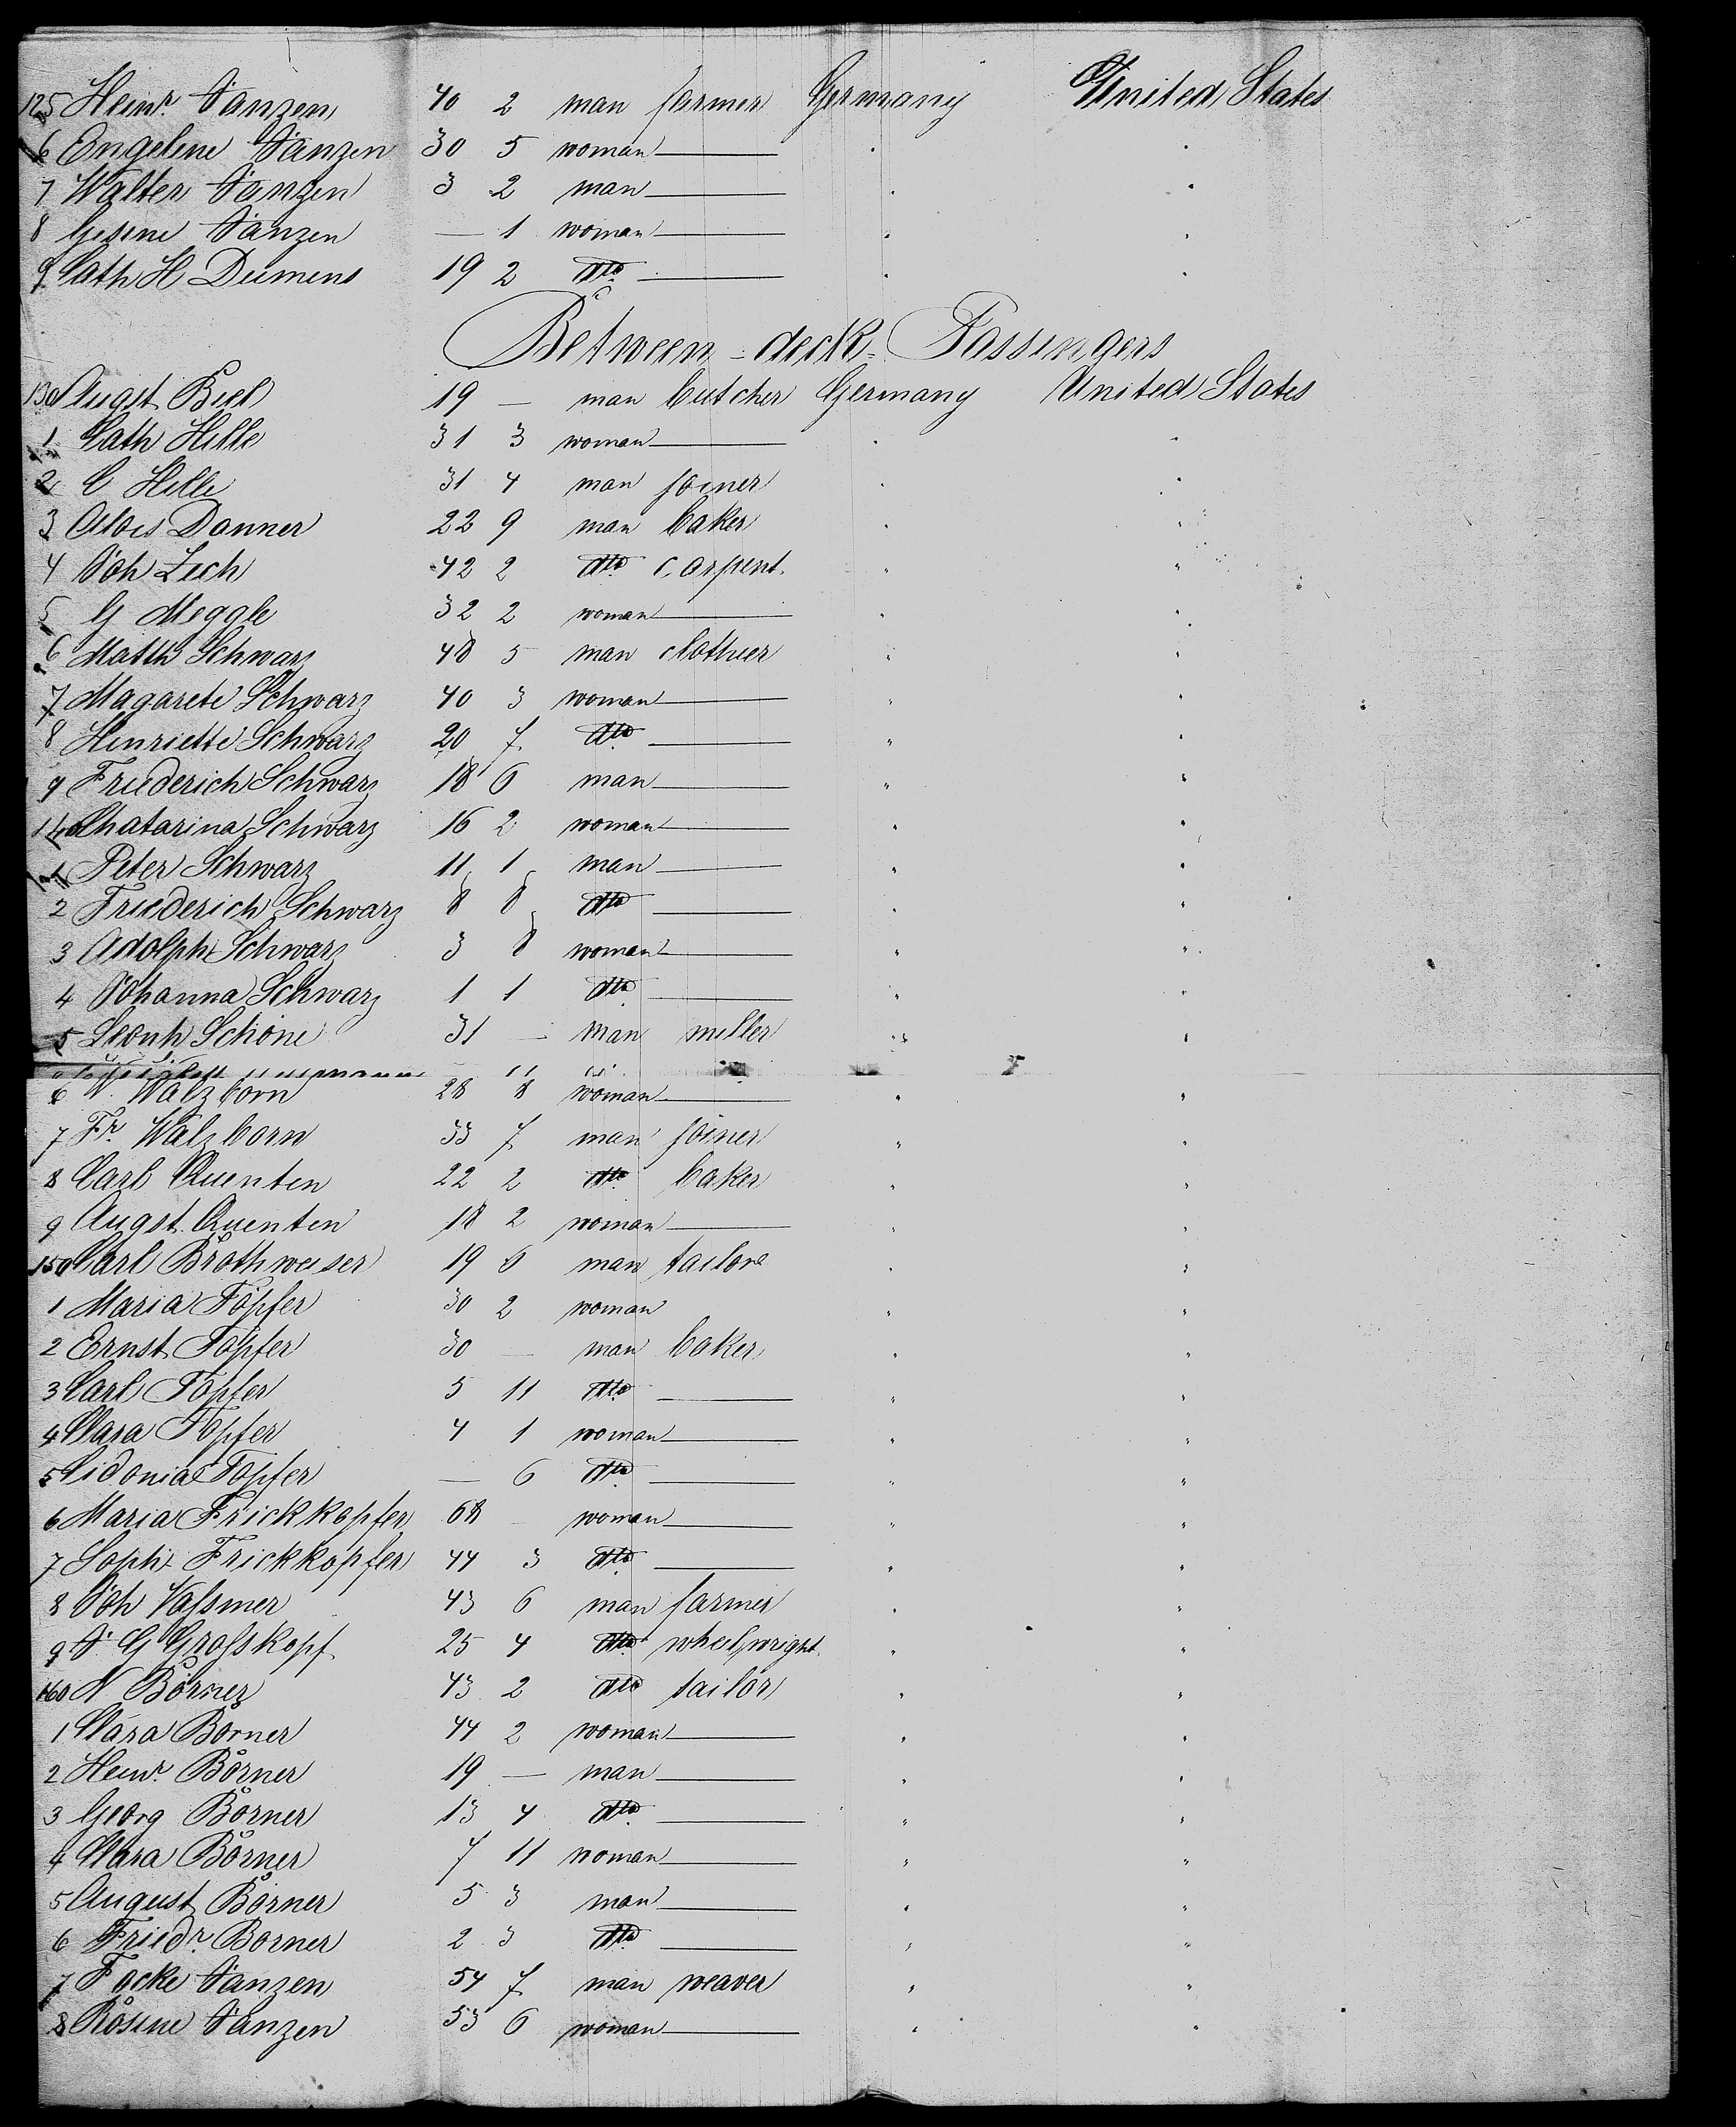 125 Heinr. Janzen 40 2 man farmer Germany United States
6 Engeline Janzen 30 5 woman — " "
7 Walter Janzen 3 2 man — " "
8 Gesine Janzen — 1 woman — " "
9 Cath H Diemens 19 2 dto — " "
Between-deck-Passengers
130 August Biel 19 — man butcher Germany United States
1 Cath Hille 31 3 woman — " "
2 C Hille 31 4 man joiner " "
3 Alois Danner 22 9 man baker " "
4 Joh Zech 42 2 dto carpent. " "
5 G Meggle 32 2 woman — " "
6 Matth Schwarz 48 5 man clothier " "
7 Magarete Schwarz 40 3 woman — " "
8 Henriette Schwarz 20 7 dto — " "
9 Friederich Schwarz 18 6 man — " "
140 Chatarina Schwarz 16 2 woman — " "
1 Peter Schwarz 11 1 man — " "
2 Friederich Schwarz 8 8 dto — " "
3 Adolph Schwarz 3 8 woman — " "
4 Johanna Schwarz 1 1 dto — " "
5 Leonh Schöne 31 — man miller " "
6 Walzborn 28 8 woman — " "
7 Fr. Walzborn 33 7 man joiner " "
8 Carl Quenten 22 2 dto baker " "
9 Augst. Quenten 18 2 woman — " "
150 Carl Brothweiser 19 6 man tailor " "
1 Maria Töpfer 30 2 woman " "
2 Ernst Töpfer 30 — man baker " "
3 Carl Töpfer 5 11 dto — " "
4 Clara Töpfer 4 1 woman — " "
5 Cidonia Töpfer — 6 dto — " "
6 Maria Frickkopfer 68 — woman — " "
7 Soph. Frickkopfer 44 3 dto — " "
8 Joh Vaſsmer 43 6 man farmer " "
9 J G Groſskopf 25 4 dto wheelwright " "
160 N Börner 43 2 dto tailor " "
1 Clara Börner 44 2 woman — " "
2 Heinr. Börner 19 — man — " "
3 Georg Börner 13 4 dto — " "
4 Clara Börner 7 11 woman — " "
5 August Börner 5 3 man — " "
6 Friedr. Börner 2 3 dto — " "
7 Focke Janzen 54 7 man weaver " "
8 Rosine Janzen 53 6 woman — " "